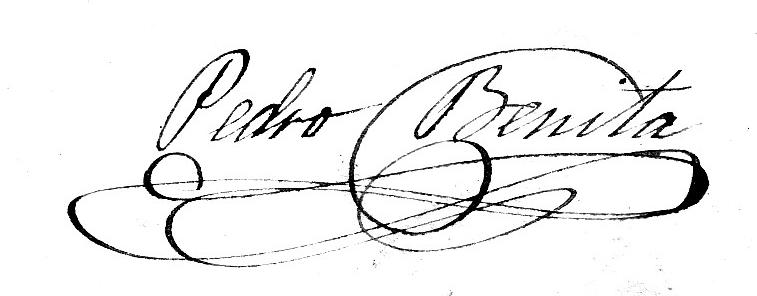 Pedro Benita